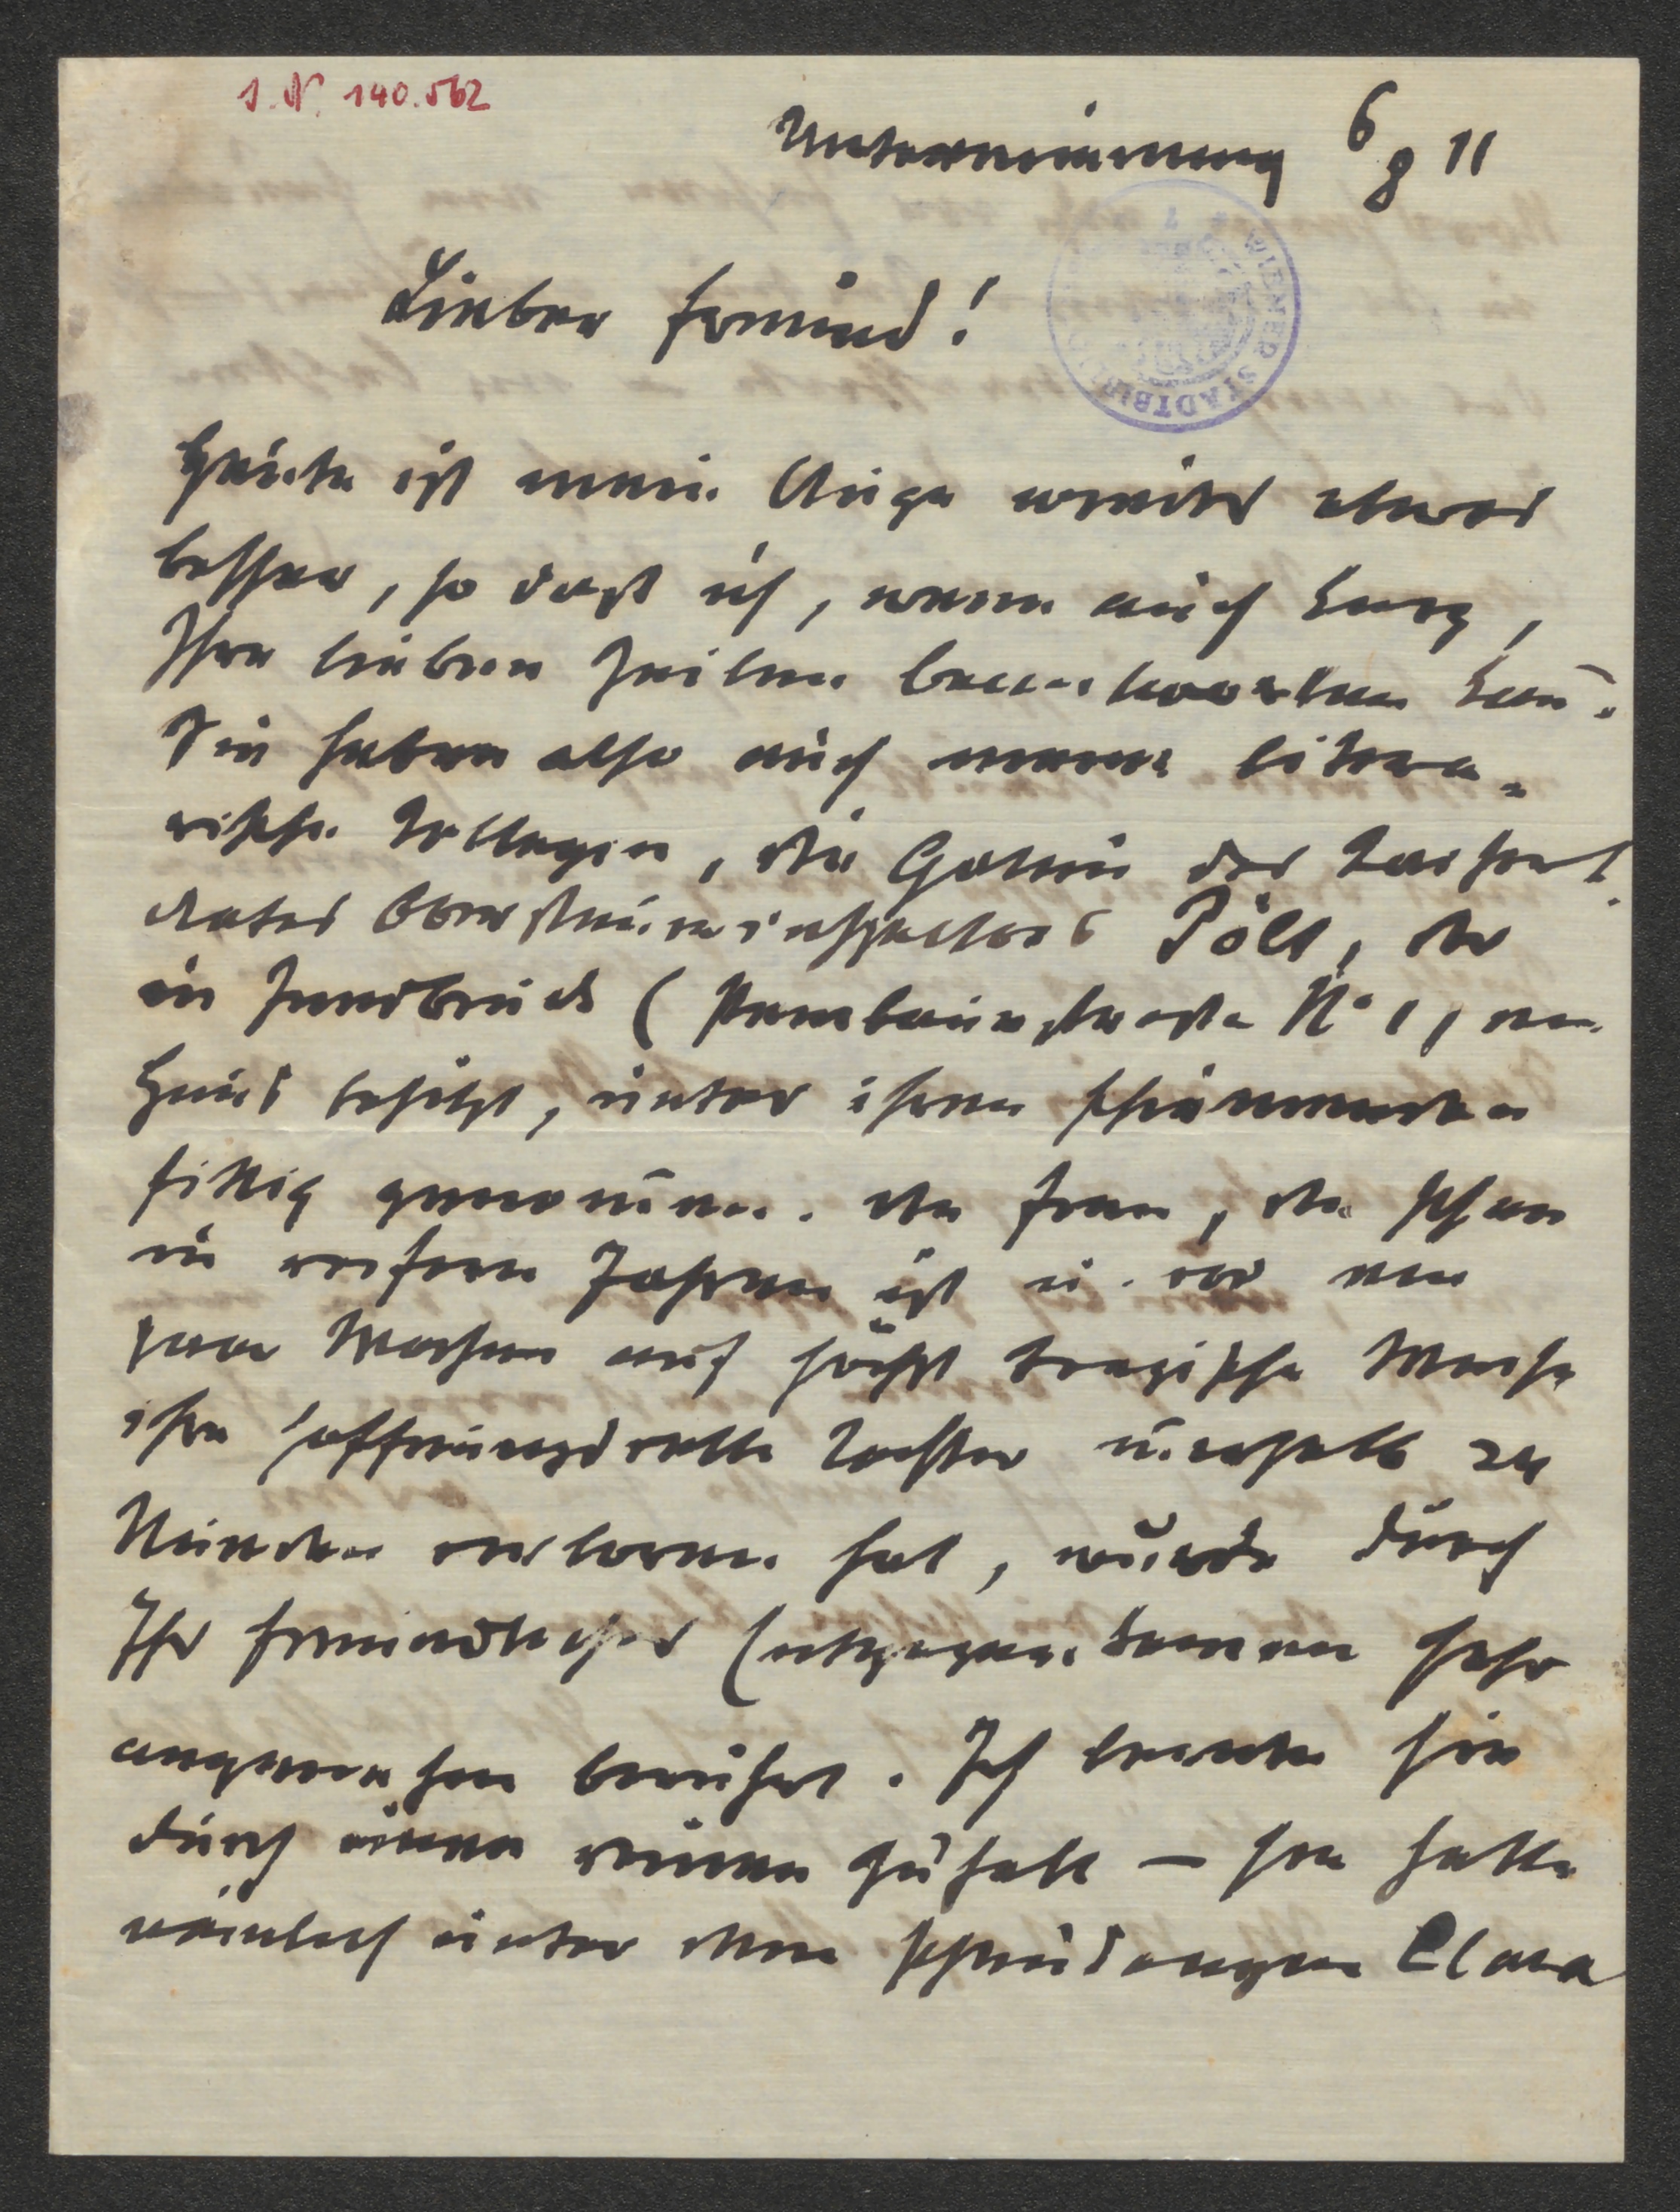 I. N. 140.562
Untermeinung 6/8 11
WIENER STADTBIBLIOTHEK
Lieber Freund!
Heute ist mein Auge wieder etwas
besser, so dass ich, wenn auch kurz,
Ihre lieben Zeilen beantworten kan̄.
Sie haben also auch meine litera-
rische Kollegin, die Gattin des
Obersteuerinspectors Pölt, der
in Innsbruck (strasse No 1) ein
Haus besitzt, unter ihren
Fittig genom̄en. Die Frau, die schon
in reifern Jahren ist u. vor ein
paar Wochen auf höchst tragische Weise
ihre hoffnungsvolle Tochter innerhalb 24
Stunden verloren hat, wurde durch
Ihr freundliches Entgegenkommen sehr
angenehm berührt. Ich lernte sie
durch einen reinen Zufall – sie hatte
nämlich unter dem Pseudonym Clara